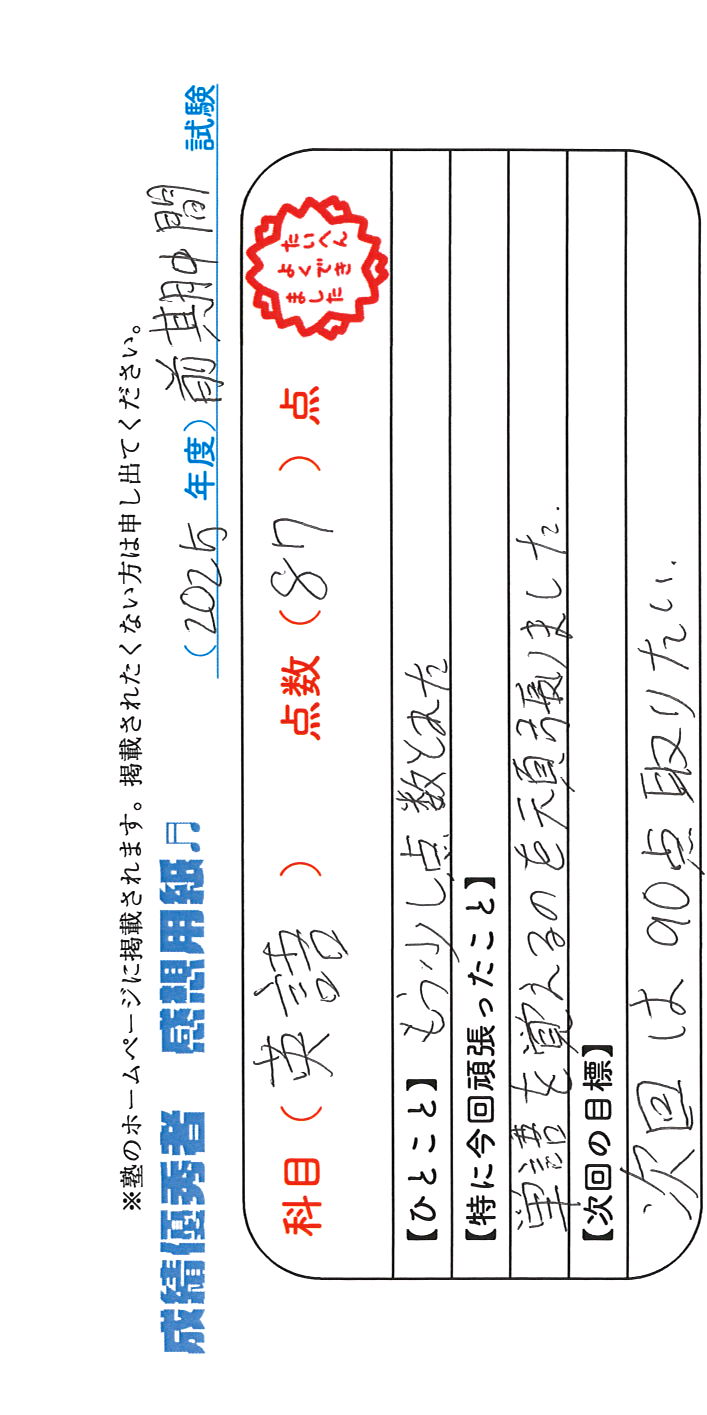 ※塾のホームページに掲載されます。掲載されたくない方は申し出てください。
成績優秀者 感想用紙♫ (2025年度)前期中間 試験
科目(英語) 点数(87)点
たいへん
よくでき
ました
【ひとこと】もう少し点数とれた
【特に今回頑張ったこと】
単語を覚えるのを頑張りました.
【次回の目標】
次回は90点取りたい.